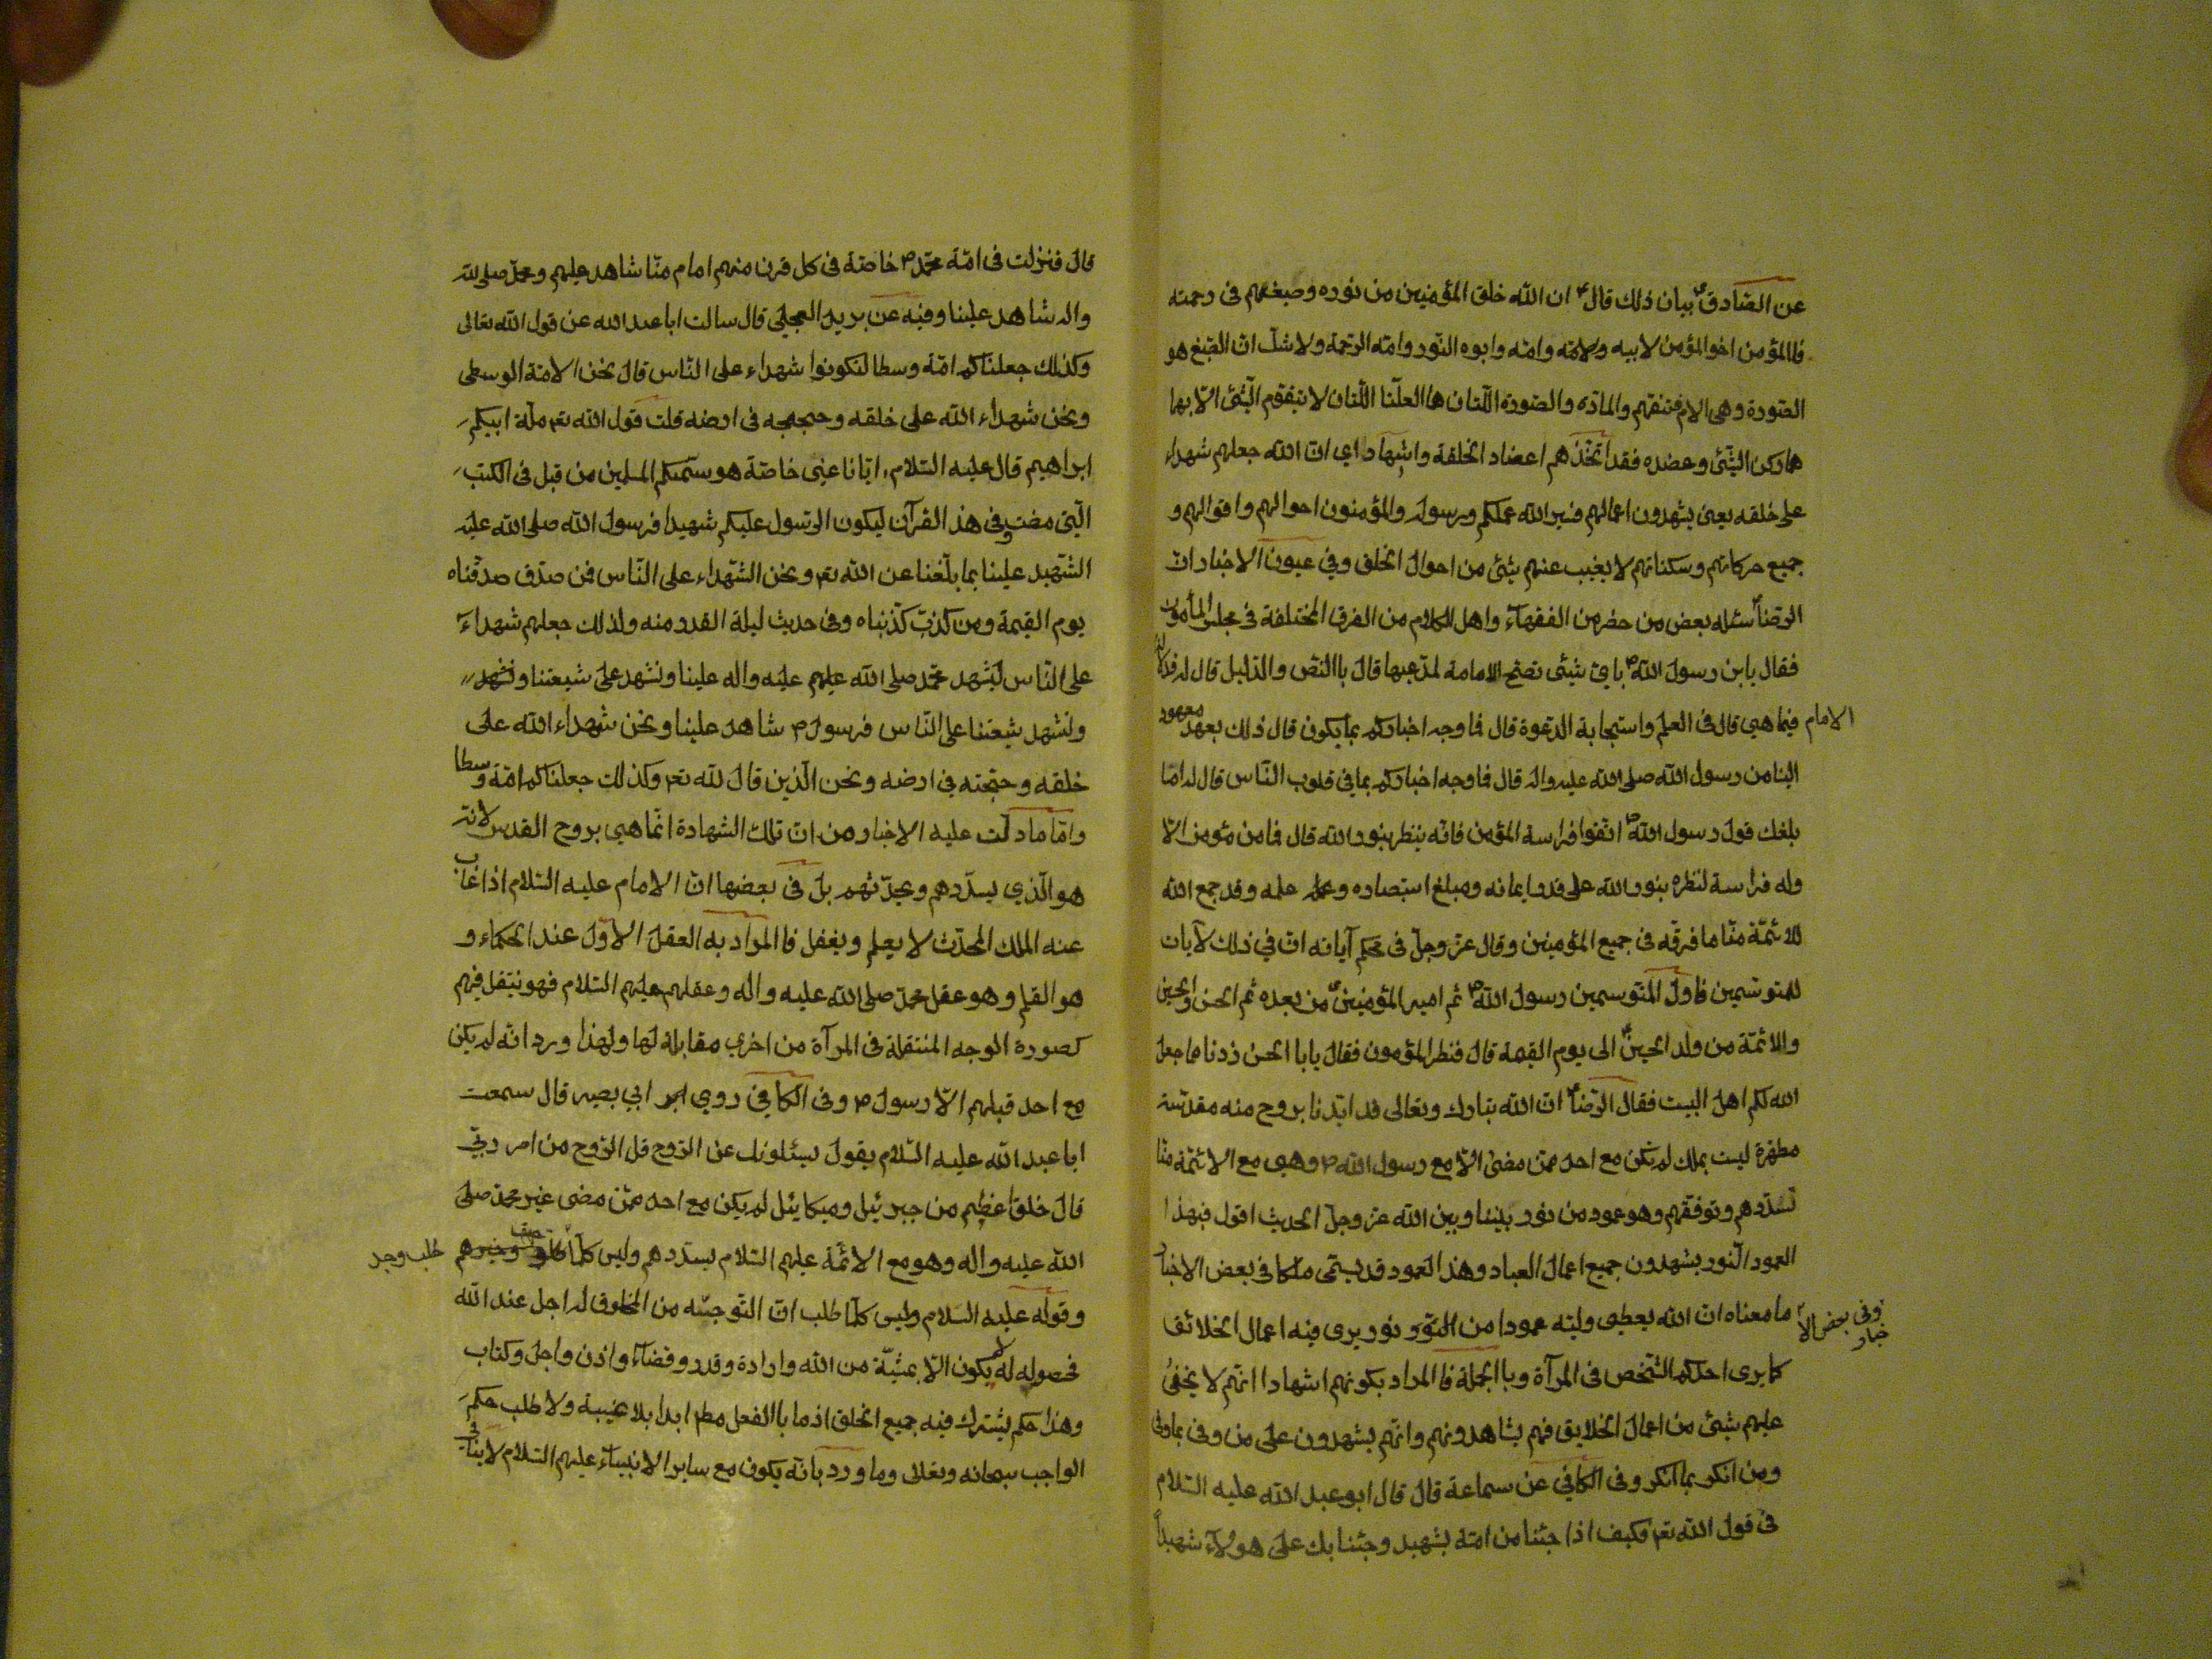 عن الصّادق ع بيان ذلك قال ع ان الله خلق المؤمنين من نوره وصبغهم فى رحمته
فالمؤمن اخو المؤمن لابيه ولامّه وامّه وابوه النّور وامّه الرّحمة ولا شكّ انّ الصّبغ هو
الصّورة وهى الام والمادّة والصّورة اللّتان هما العلّتا اللّتان لا يتقوّم الشّئ الّا بهما
هما ركن الشّئ وعضده فقد اتّخذهم اعضاد الخلقة واشهاد اي انّ الله جعلهم شهداء
على خلقه يعنى يشهدون اعمالهم فسيرالله عملكم ورسوله والمؤمنون احوالهم واقوالهم و
جميع حركاتهم وسكناتهم لا يغيب عنهم شئ من احوال الخلق وفي عيون الاخبار انّ
الرّضا ع سئله بعض من حضر من الفقهاء واهل الكلام من الفرق المختلفة فى مجلس المأمون
فقال يابن رسول الله ص باي شئى تصحّ الامامة لمدّعيها قال بالنّص والدّليل قال له فدلالة
الامام فيما هى قال فى العلم واستجابة الدّعوة قال فما وجه اخباركم بما يكون قال ذلك بعهد معهود
الينا من رسول الله صلى الله عليه واله قال فما وجه اخباركم بما في قلوب النّاس قال له امّا
بلغك قول رسول الله ص اتّقوا فراسة المؤمن فانّه ينظر بنور الله قال فما من مؤمن الّا
وله فراسة لنظره بنور الله على قدر ايمانه ومبلغ استبصاره وعلمه وقد جمع الله
للائمّة منّا ما فرّقه فى جميع المؤمنين وقال عزّ وجلّ فى محكم آياته انّ في ذلك لآيات
للمتوسّمين فاوّل المتوسمين رسول الله ص ثم امير المؤمنين ع من بعده ثم الحسن والحسين
والائمّة من ولد الحسين ع الى يوم القيمة قال فنظر المؤمون فقال يابا الحسن زدنا ما جعل
الله لكم اهل البيت فقال الرّضا ع انّ الله تبارك وتعالى قد ايّدنا بروح منه مقدّسة
مطهّرة ليست بملك لم تكن مع احد ممّن مضى الّا مع رسول الله ص وهى مع الائمّة منّا
تسدّدهم وتوفّقهم وهو عمود من نور بيننا وبين الله عزّ وجلّ الحديث اقول فبهذا
العمود النّور يشهدون جميع اعمال العباد وهذا العمود قد يسمّى ملكا في بعض الاخبار
وفى بعض الاخبار ما معناه ان الله يعطى وليّه عمودا من النّور نور يرى فيه اعمال الخلائق
كما يرى احدكم الشّخص فى المرآة وبا الجملة فالمراد بكونهم اشهادا انّهم لا يخفى
عليهم شئ من اعمال الخلايق فهم يشاهدونهم وانّهم يشهدون على من وفى بما وفى
ومن انكر بما انكر وفى الكافي عن سماعة قال قال ابو عبد الله عليه السّلام
فى قول الله تعر فكيف اذا جئنا من امّة بشهيد وجئنا بك على هولآء شهيداً
قال فنزلت فى امّة محمّد ص خاصّة فى كل قرن منهم امام منّا شاهد عليهم ومحمّد صلى الله
واله شاهد علينا وفيه عن بريد العجلى قال سالت ابا عبد الله عن قول الله تعالى
وكذلك جعلناكم امّة وسطا لتكونوا شهداء على النّاس قال نحن الامّة الوسطى
ونحن شهداء الله على خلقه وحججه فى ارضه قلت قول الله تعر ملّة ابيكم
ابراهيم قال عليه السّلام ايّانا عنى خاصّة هو سمّيكم المسلمين من قبل فى الكتب
الّتى مضت وفى هذ القرآن ليكون الرّسول عليكم شهيدا فرسول الله صلى الله عليه
الشّهيد علينا بما بلّغنا عن الله تعر ونحن الشّهداء على النّاس فمن صدّق صدقناه
يوم القيمة ومن كذّب كذّبناه وفى حديث ليلة القدر منه ولذلك جعلهم شهداء
على النّاس ليشهد محمّد صلى الله عليهم عليه واله علينا ونشهد على شيعتنا ونشهد
ولتشهد شيعتنا على النّاس فرسول ص شاهد علينا ونحن شهداء الله على
خلقه وحجّته في ارضه ونحن الّذين قال لله تعر وكذلك جعلناكم امّة وسطا
وامّا ما دلّت عليه الاخبار من انّ تلك الشهادة انّما هى بروح القدس لانّه
هو الّذي يسدّدهم ويحدّثهم بل فى بعضها انّ الامام عليه السّلام اذا غاب
عنه الملك المحدّث لا يعلم ويغفل فالمراد به العقل الاوّل عند الحكماء و
هو القلم وهو عقل محمّد صلى الله عليه واله وعقلهم عليهم السّلام فهو ينتقل فيهم
كصورة الوجه المنتقلة فى المرآة من اخرى مقابلة لها ولهذا ورد انّه لم يكن
مع احد قبلهم الّا رسول ص وفى الكافي روى ابي بصير قال سمعت
ابا عبد الله عليه السّلام يقول يسئلونك عن الرّوح قل الرّوح من امر ربّي
قال خلق اعظم من جبرئيل وميكائيل لم يكن مع احد ممّن مضى غير محمّد صلى
الله عليه واله وهو مع الائمّة عليهم السّلام يسدّدهم وليس كلّما طلب وجد
وقوله عليه السّلام وليس كلّما طلب انّ التّوجّه من المخلوق له اجل عند الله
فحصوله له لم يكون الّا بمشيّة من الله وارادة وقدر وقضاء واذن واجل وكتاب
وهذا حكم يشترك فيه جميع الخلق اذ ما با الفعل مطر ابدا بلا غيبة ولا طلب حكم
الواجب سبحانه وتعالى وما ورد بانّه يكون مع ساير الانبياء عليهم السّلام لا ينافى